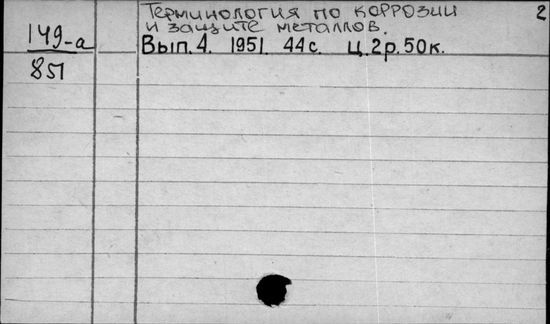 Терминология по коррозии 2
и защите металлов.
149-а
Вып. 4. 1951. 44 с. Ц. 2 р. 50 к.
851